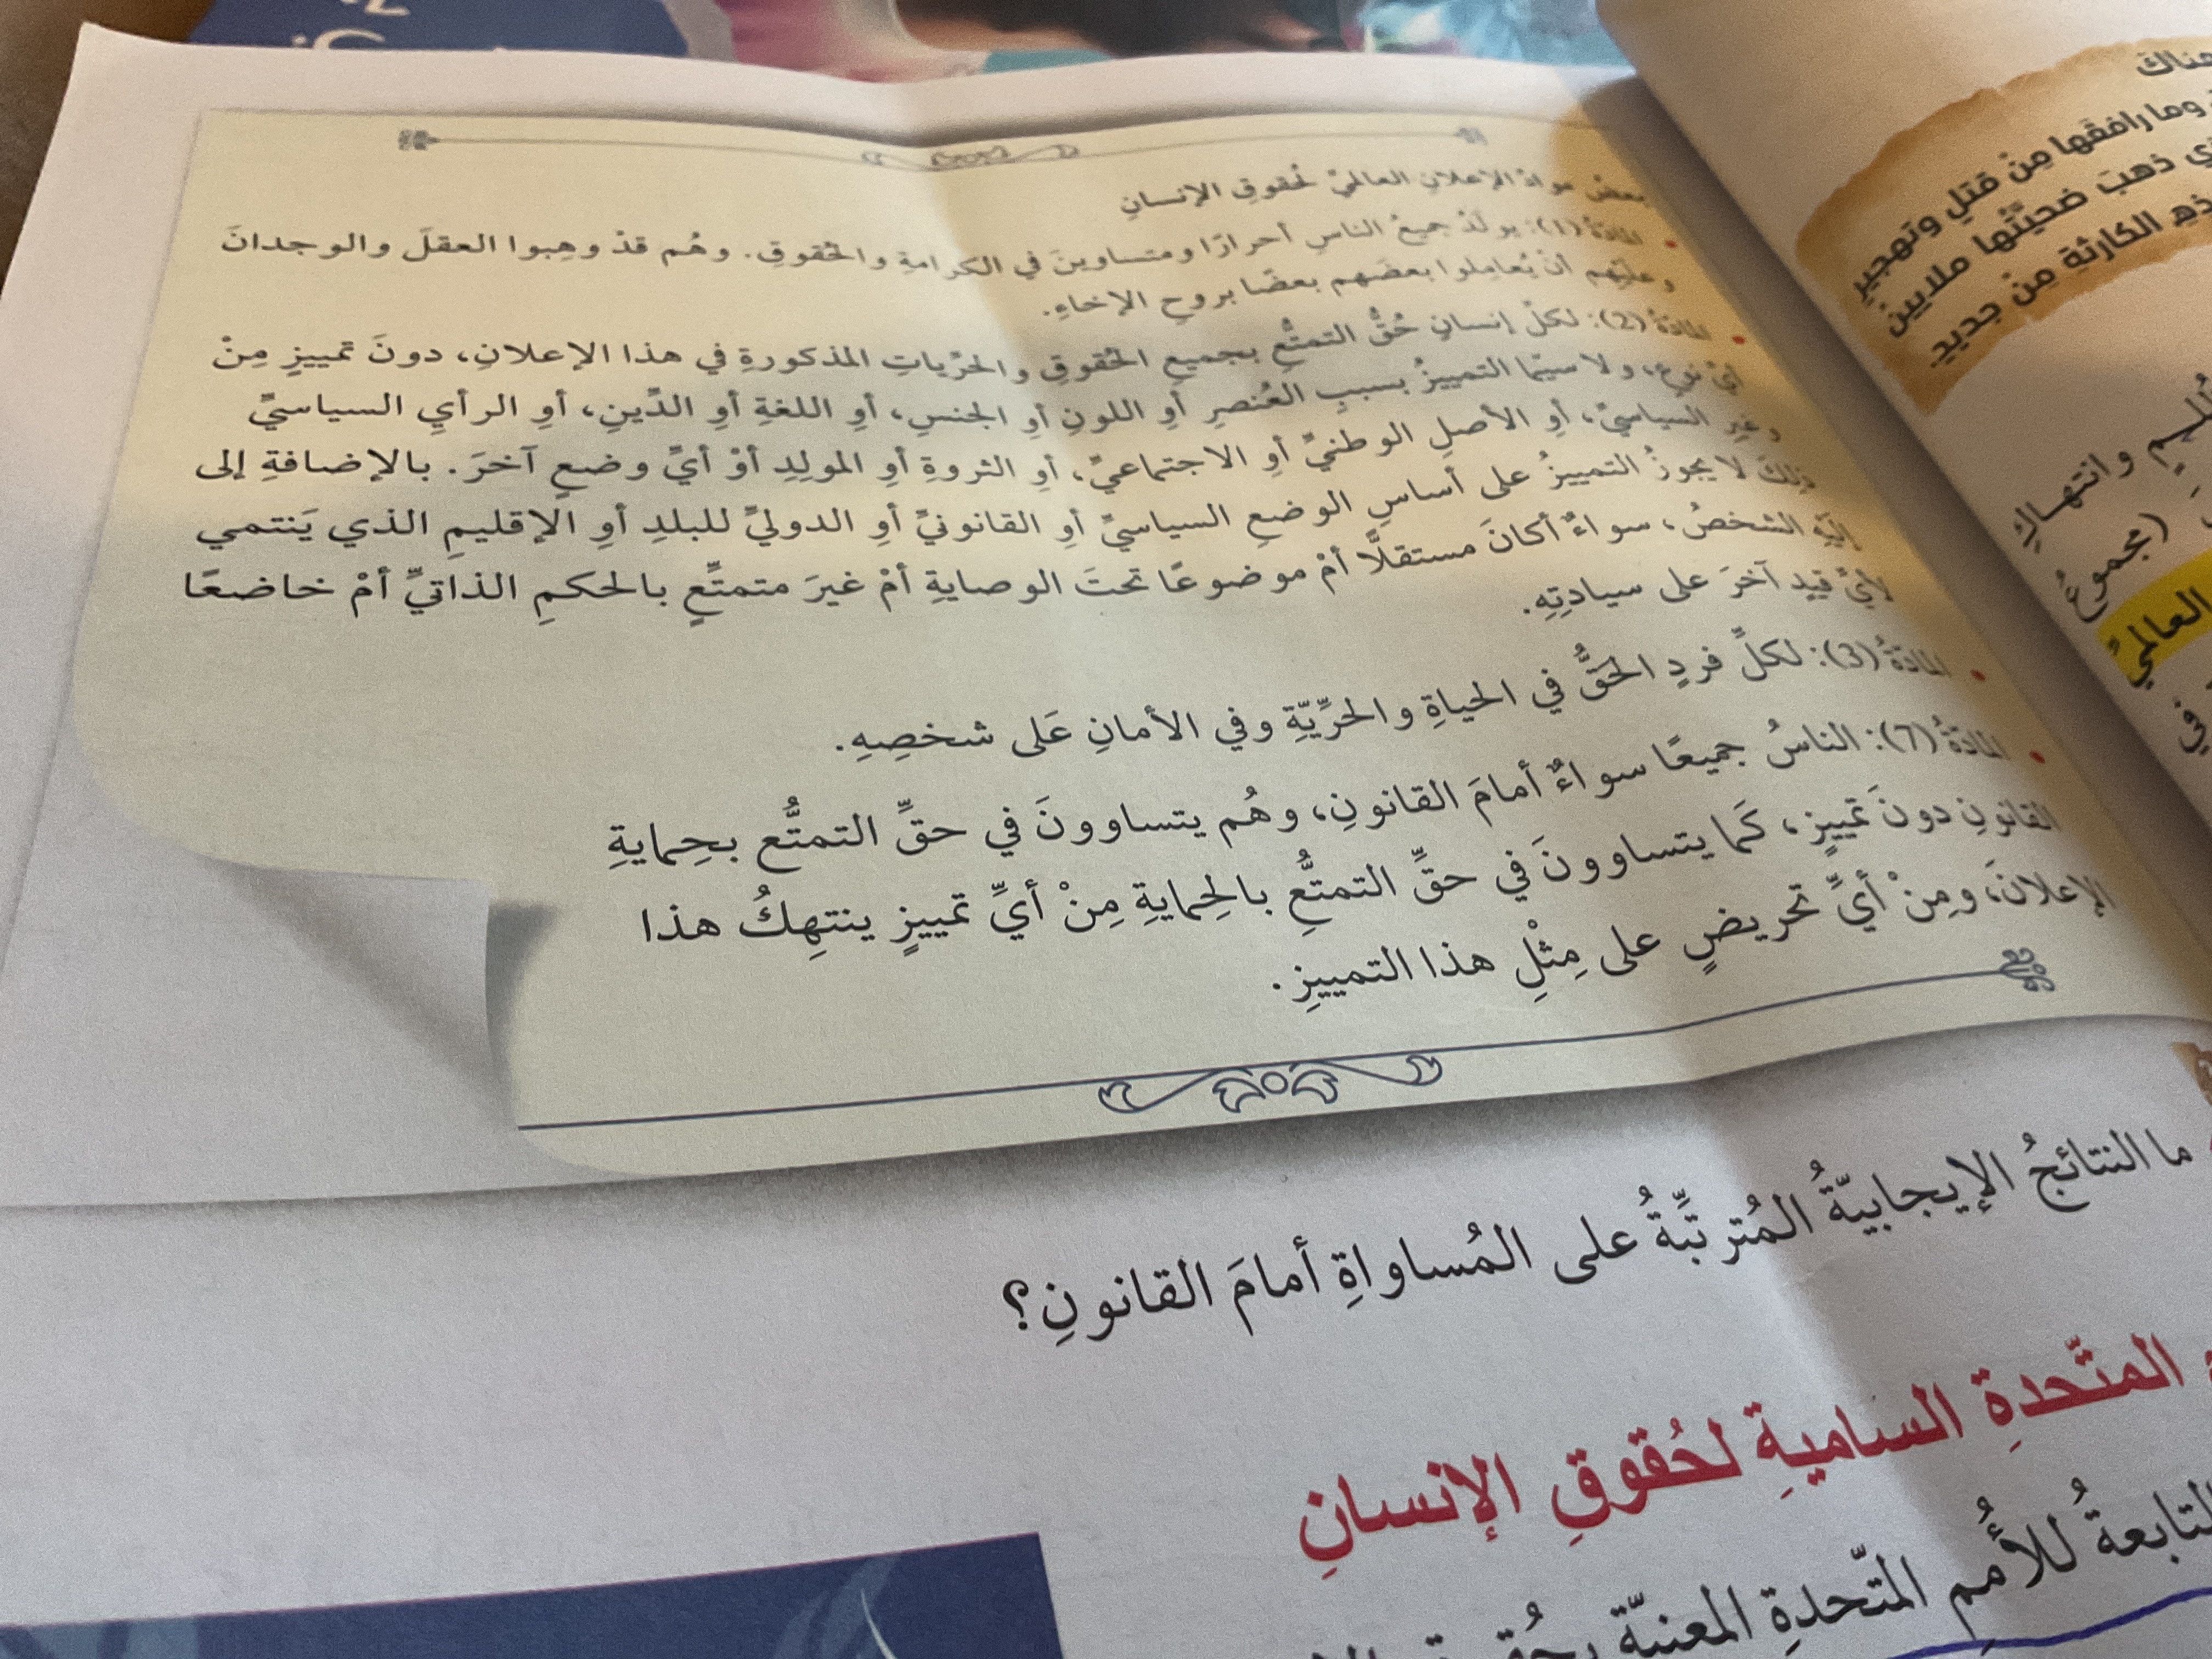 بعضُ موادّ الإعلانِ العالميِّ لحُقوقِ الإنسانِ
المادّةُ (1): يولَدُ جميعُ الناسِ أحرارًا ومتساوينَ في الكرامةِ والحُقوقِ. وهُم قدْ وهِبوا العقلَ والوجدانَ
وعليْهِم أنْ يُعاملوا بعضَهم بعضًا بروحِ الإخاءِ.
المادّةُ (2): لكلِّ إنسانٍ حُقُّ التمتُّعِ بجميعِ الحُقوقِ والحرّياتِ المذكورةِ في هذا الإعلانِ، دونَ تمييزٍ مِنْ
أيِّ نوعٍ، ولا سيّما التمييزُ بسببِ العُنصرِ أوِ اللونِ أوِ الجنسِ، أوِ اللغةِ أوِ الدّينِ، أوِ الرأيِ السياسيِّ
وغيرِ السياسيِّ، أوِ الأصلِ الوطنيِّ أوِ الاجتماعيِّ، أوِ الثروةِ أوِ المولِدِ أوْ أيِّ وضعٍ آخرَ. بالإضافةِ إلى
ذلِكَ لا يجوزُ التمييزُ على أساسِ الوضعِ السياسيِّ أوِ القانونيِّ أوِ الدوليِّ للبلدِ أوِ الإقليمِ الذي يَنتمي
إليْهِ الشخصُ، سواءٌ أكانَ مستقلًّا أمْ موضوعًا تحتَ الوصايةِ أمْ غيرَ متمتِّعٍ بالحكمِ الذاتيِّ أمْ خاضعًا
لأيِّ قيدٍ آخرَ على سيادتِهِ.
المادّةُ (3): لكلِّ فردٍ الحَقُّ في الحياةِ والحرِّيّةِ وفي الأمانِ عَلى شخصِهِ.
المادّةُ (7): الناسُ جميعًا سواءٌ أمامَ القانونِ، وهُم يتساوونَ في حقِّ التمتُّع بحِمايةِ
القانونِ دونَ تمييزٍ، كَما يتساوونَ في حقِّ التمتُّعِ بالحِمايةِ مِنْ أيِّ تمييزٍ ينتهِكُ هذا
الإعلانَ، ومِنْ أيِّ تحريضٍ على مِثْلِ هذا التمييزِ.
ما النتائجُ الإيجابيّةُ المُترتّبِّةُ على المُساواةِ أمامَ القانونِ؟
المتّحدةِ الساميةِ لحُقوقِ الإنسانِ
التابعةُ للأُممِ المتّحدةِ المعنيّة
هناكَ
وما رافقَها مِنْ قتلٍ وتهجيرٍ
ذهبَ ضحيّتُها ملايين
الكارثةِ مِنْ جديدٍ
وانتهاكِ
(مجموعُ
العالميِّ
في